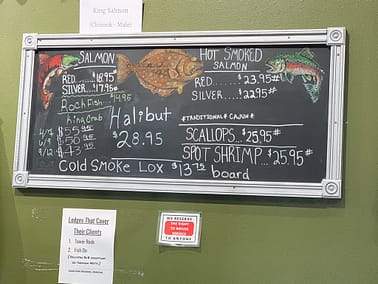 King Salmon
(Chinook - Male)
SALMON
RED....$18.95#
SILVER...$17.95#
Rockfish...$14.95
King Crab
4/7 $55.95
6/9 $50.95
9/12 $43.95
Halibut
$28.95
HOT SMOKED
SALMON
RED.......$23.95#
SILVER.....$22.95#
*TRADITIONAL* CAJUN*
SCALLOPS...$25.95#
SPOT SHRIMP...$25.95#
Cold Smoke Lox $13.75 board
Lodges That Cover
Their Clients
1. Tower Rock
2. Fish On
WE RESERVE
THE RIGHT
TO REFUSE
SERVICE
TO ANYONE